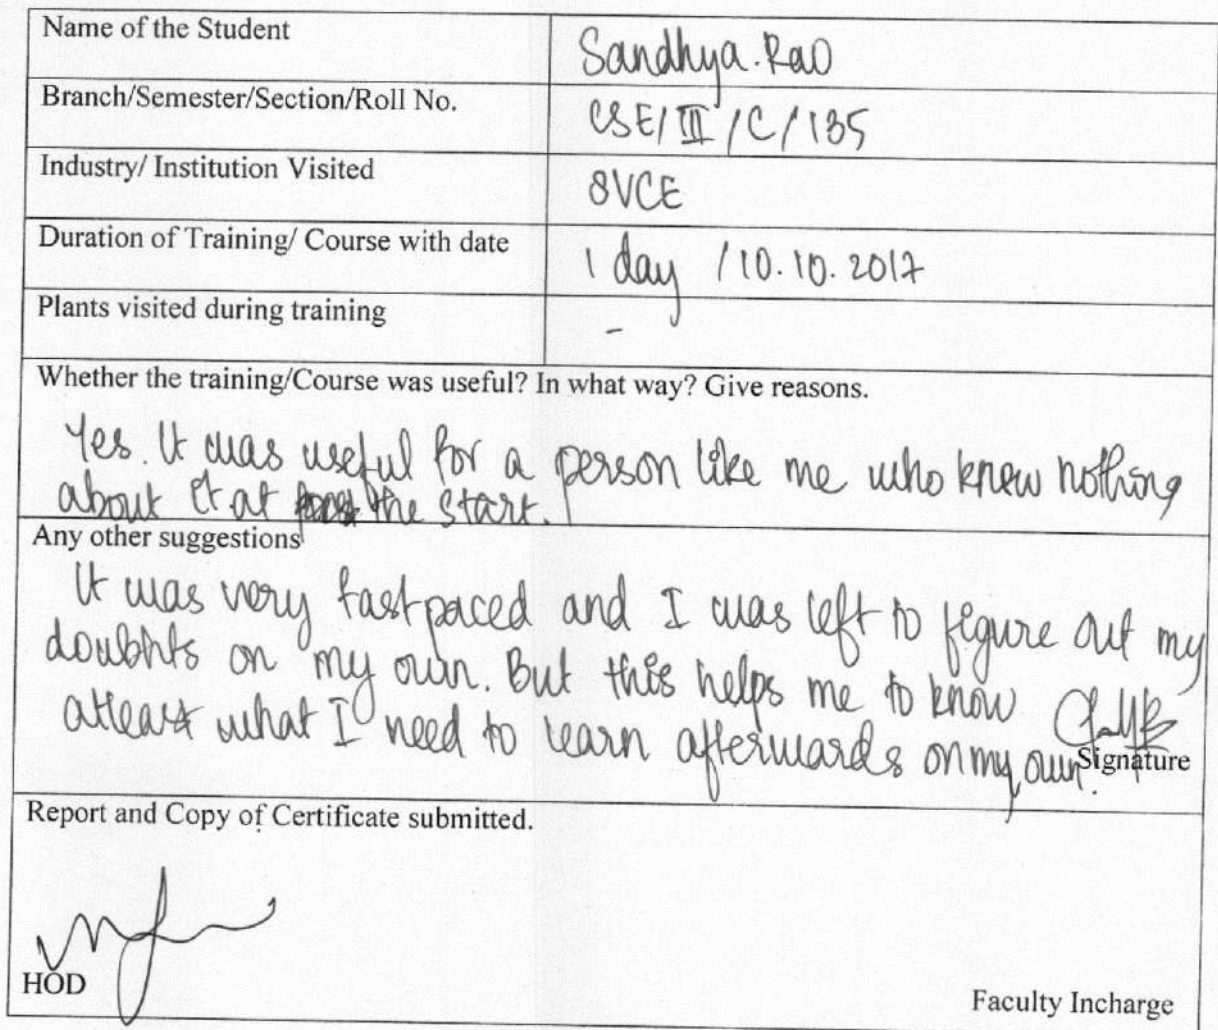 Name of the Student Sandhya.Rao
Branch/Semester/Section/Roll No. CSE/III/C/135
Industry/ Institution Visited SVCE
Duration of Training/ Course with date 1 day / 10.10.2017
Plants visited during training -
Whether the training/Course was useful? In what way? Give reasons.
Yes. It was useful for a person like me who knew nothing
about it at the start.
Any other suggestions
It was very fast paced and I was left to figure out my
doubhts on my own. But this helps me to know
atleast what I need to learn afterwards on my own.
Signature
Report and Copy of Certificate submitted.
HOD
Faculty Incharge